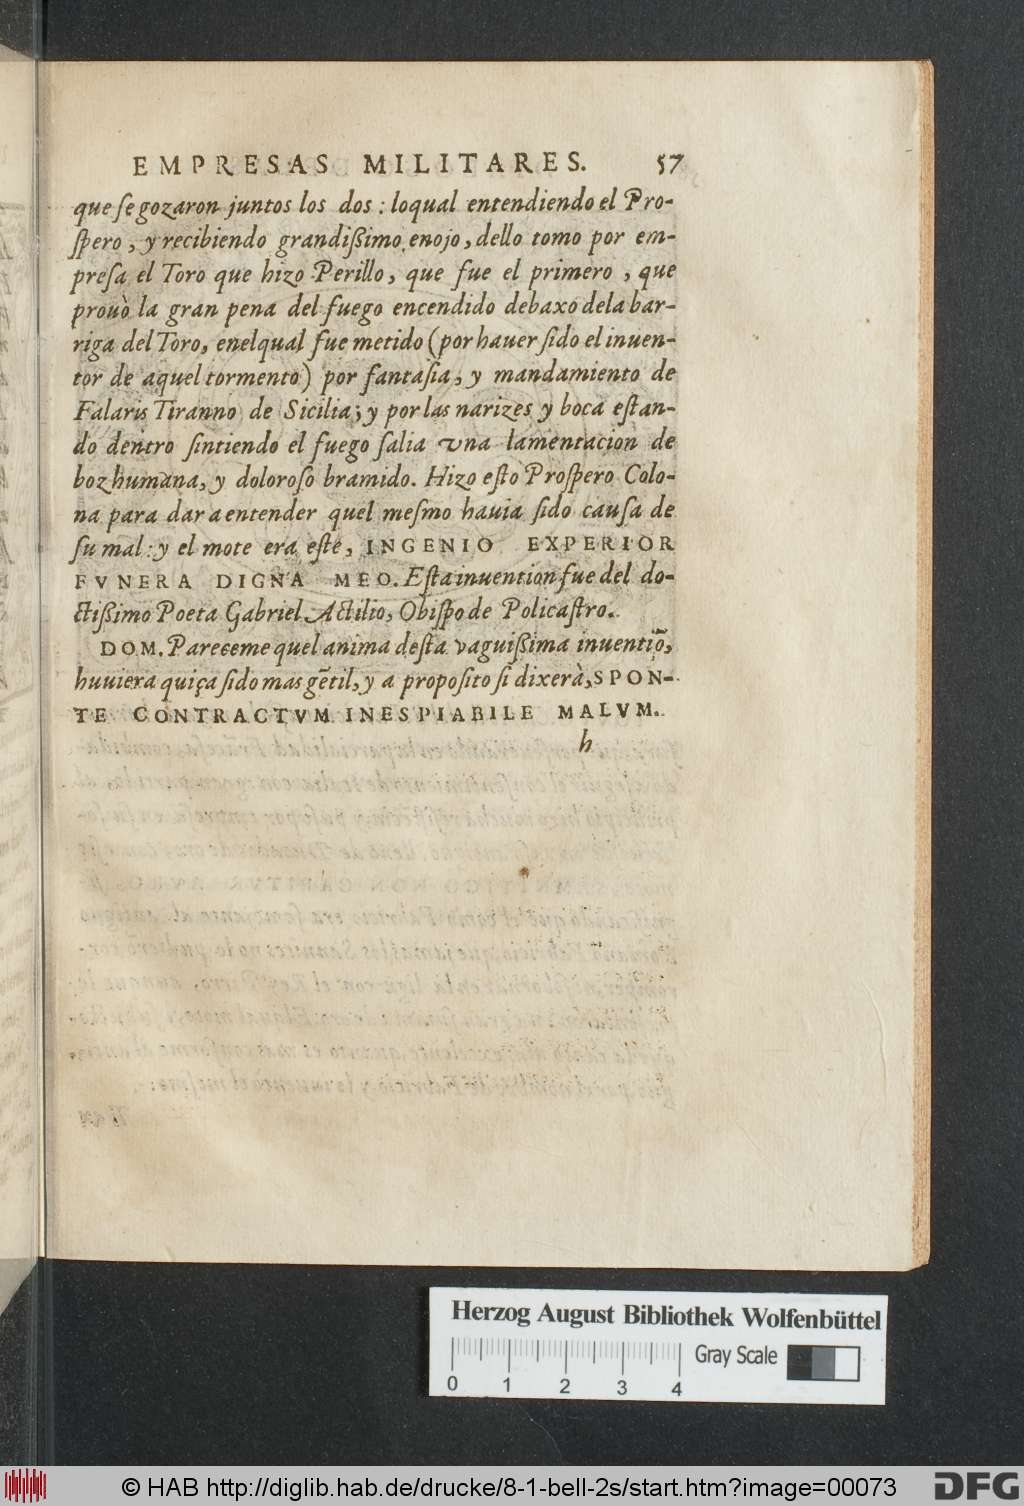 EMPRESAS MILITARES. 57
que ſe gozaron juntos los dos : loqual entendiendo el Pro-
ſpero, y recibiendo grandißimo enojo, dello tomo por em-
preſa el Toro que hizo Perillo, que fue el primero, que
prouò la gran pena del fuego encendido debaxo dela bar-
riga del Toro, enelqual fue metido (por hauer ſido el inuen-
tor de aquel tormento) por fantaſia, y mandamiento de
Falaris Tiranno de Sicilia; y por las narizes y boca eſtan-
do dentro ſintiendo el fuego ſalia vna lamentacion de
boz humana, y doloroſo bramido. Hizo eſto Proſpero Colo-
na para dar a entender quel meſmo hauia ſido cauſa de
ſu mal: y el mote era eſte, INGENIO EXPERIOR
FVNERA DIGNA MEO. Eſta inuention fue del do-
ctißimo Poeta Gabriel Actilio, Obiſpo de Policaſtro.
DOM. Pareceme quel anima deſta vaguißima inuentiõ,
huuiera quiça ſido mas gẽtil, y a propoſito ſi dixerà, SPON-
TE CONTRACTVM INESPIABILE MALVM.
h
Herzog August Bibliothek Wolfenbüttel
Gray Scale
0 1 2 3 4
© HAB http://diglib.hab.de/drucke/8-1-bell-2s/start.htm?image=00073
DFG